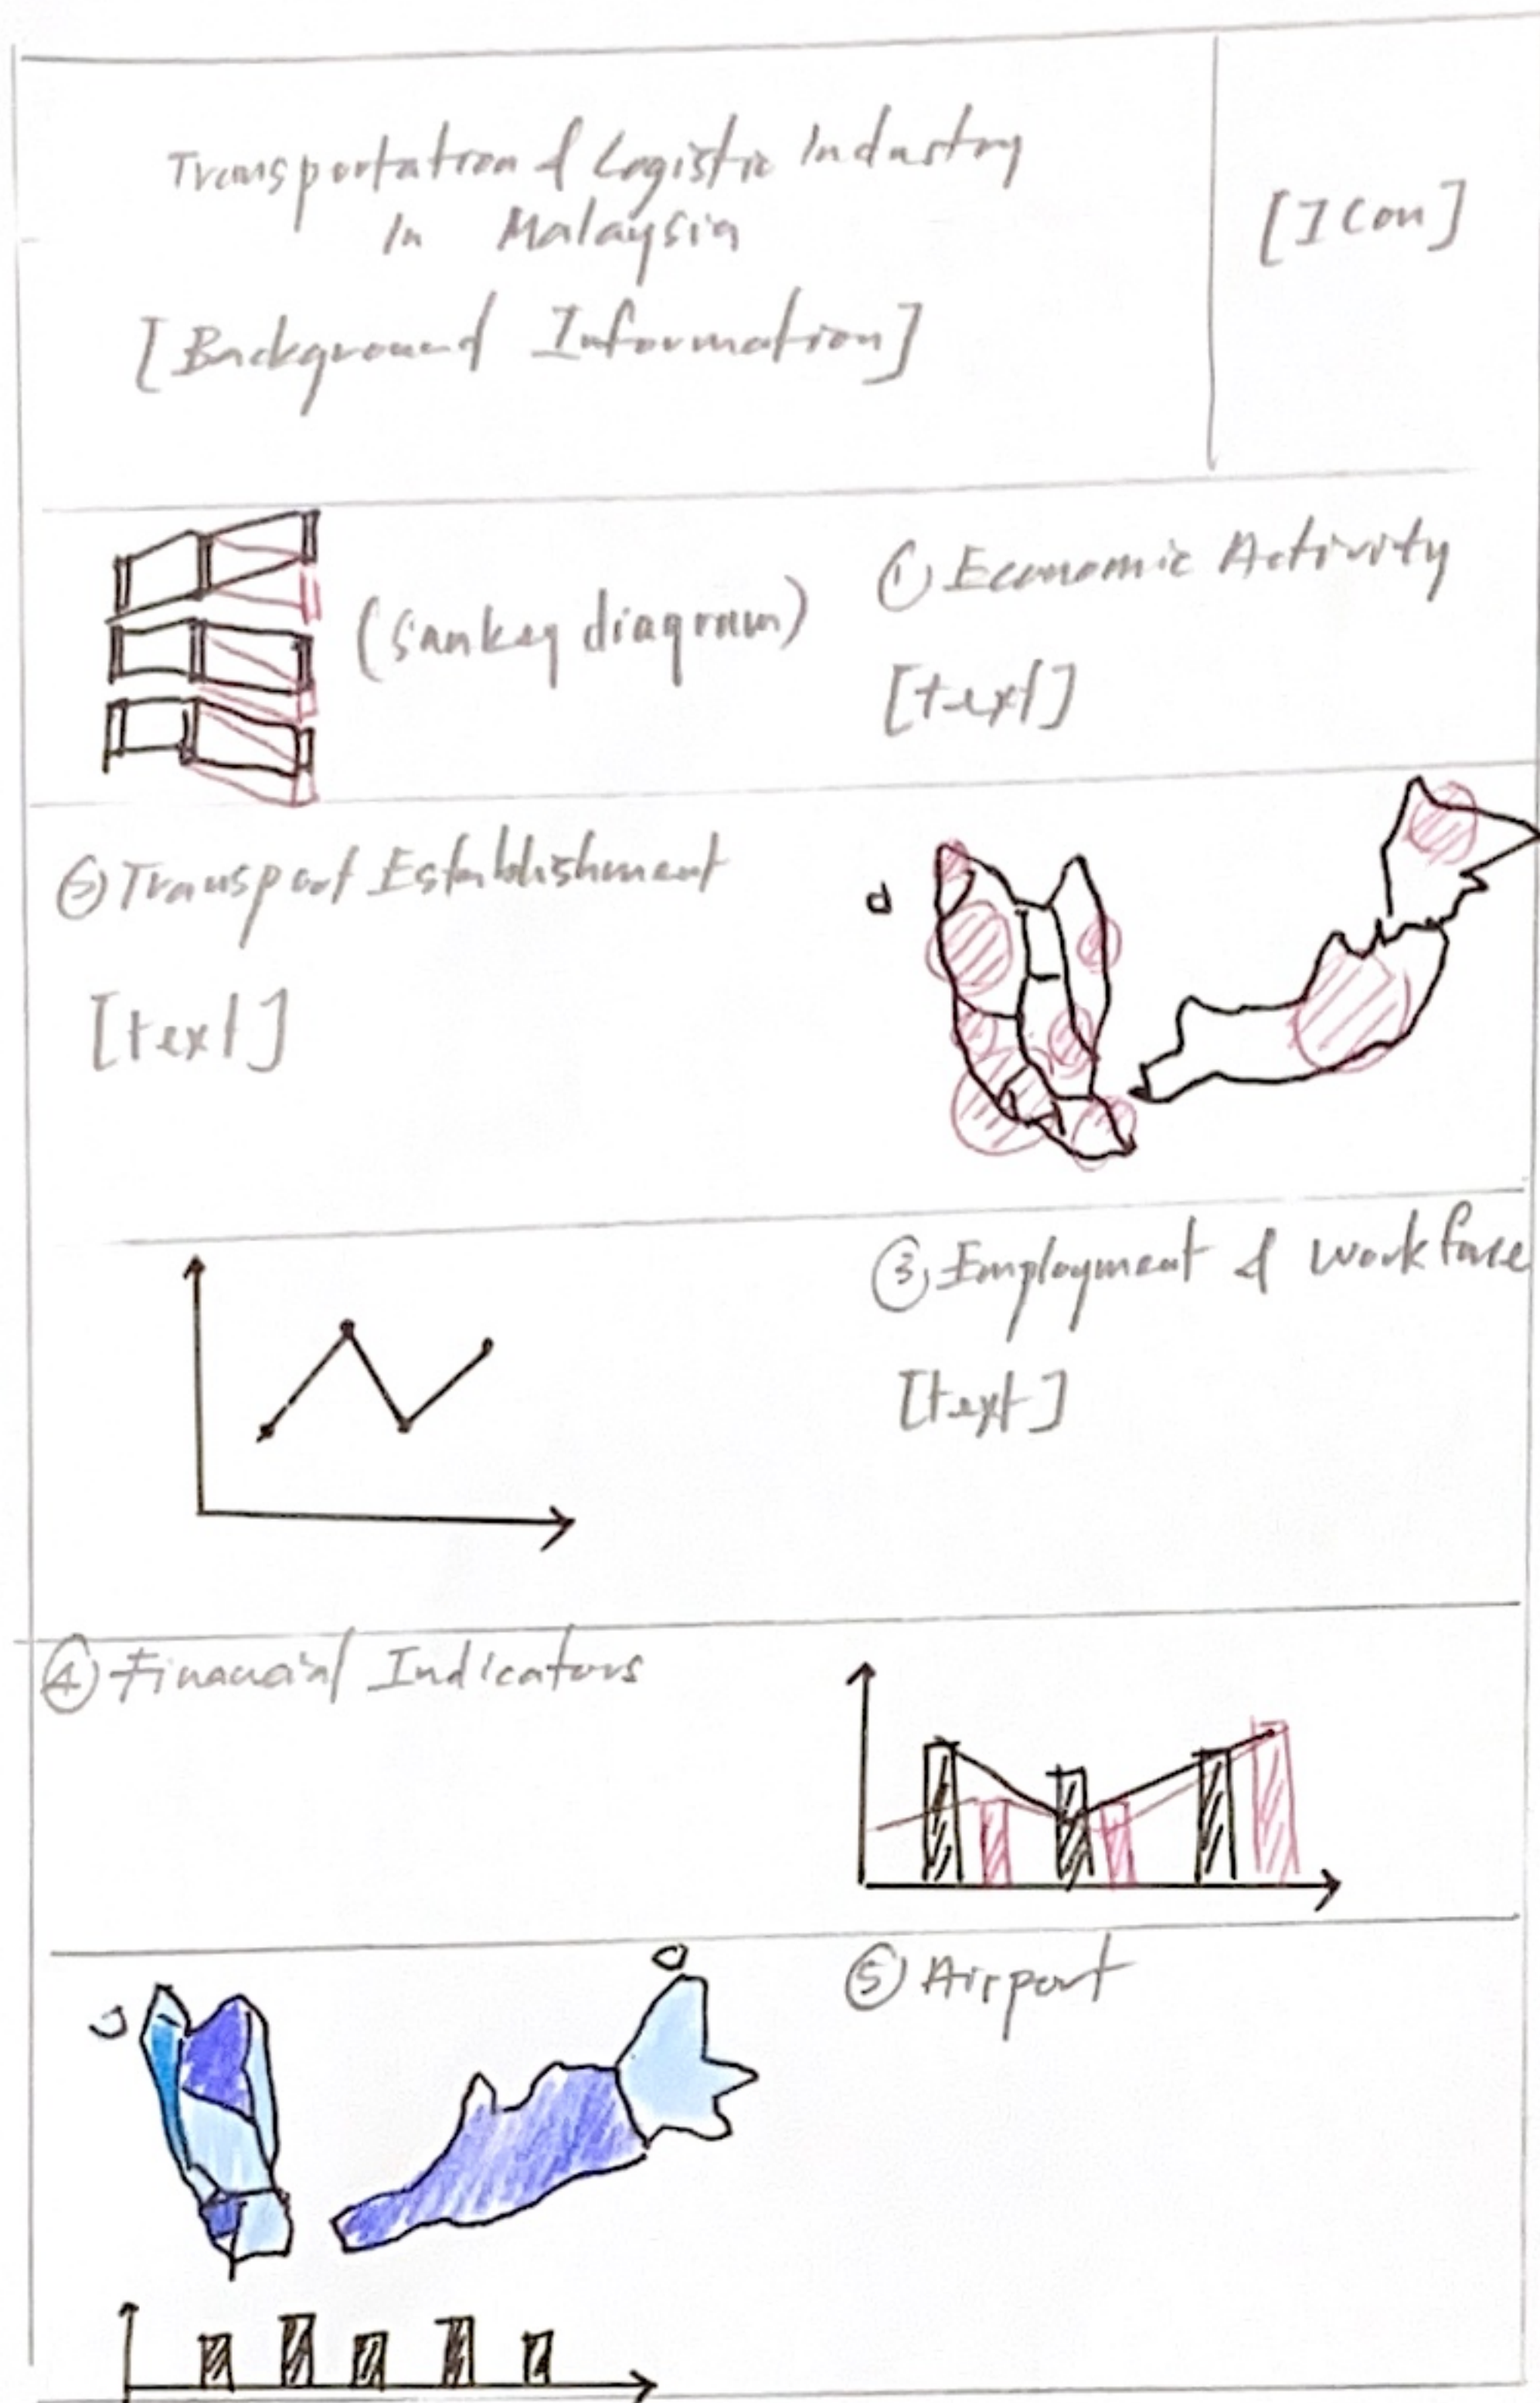 Transportation & Logistic Industry
In Malaysia
[Icon]
[Background Information]
(sankey diagram)
① Economic Activity
[text]
② Transport Establishment
[text]
③ Employment & Workforce
[text]
④ Financial Indicators
⑤ Airport